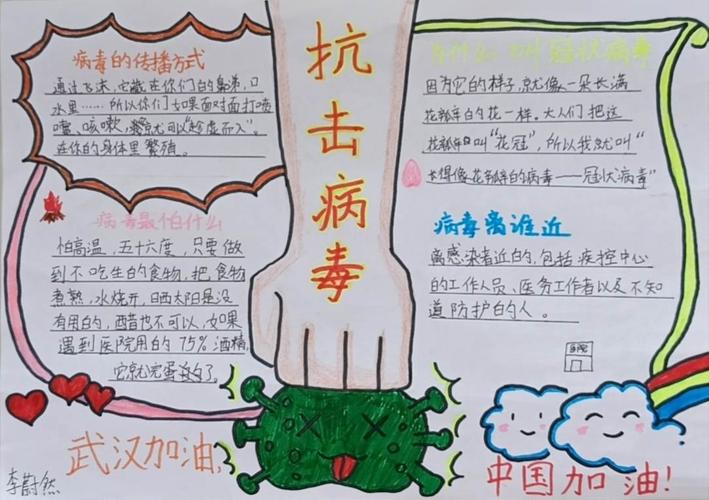 抗击病毒
病毒的传播方式
通过飞沫,它藏在你们的鼻涕,口
水里……所以你们如果面对面打喷
嚏、咳嗽,就可以"趁虚而入"。
在你的身体里繁殖。
病毒最怕什么
怕高温,五十六度,只要做
到不吃生的食物,把食物
煮熟,水烧开,晒太阳是没
有用的,醋也不可以,如果
遇到医院用的75%酒精,
它就完蛋了。
为什么叫冠状病毒
因为它的样子,就像一朵长满
花瓣的花一样。大人们把这
花瓣叫"花冠",所以我就叫"
长得像花瓣的病毒——冠状病毒"
病毒离谁近
离感染者近的,包括疾控中心
的工作人员、医务工作者以及不知
道防护的人。
武汉加油!
中国加油!
李蔚然